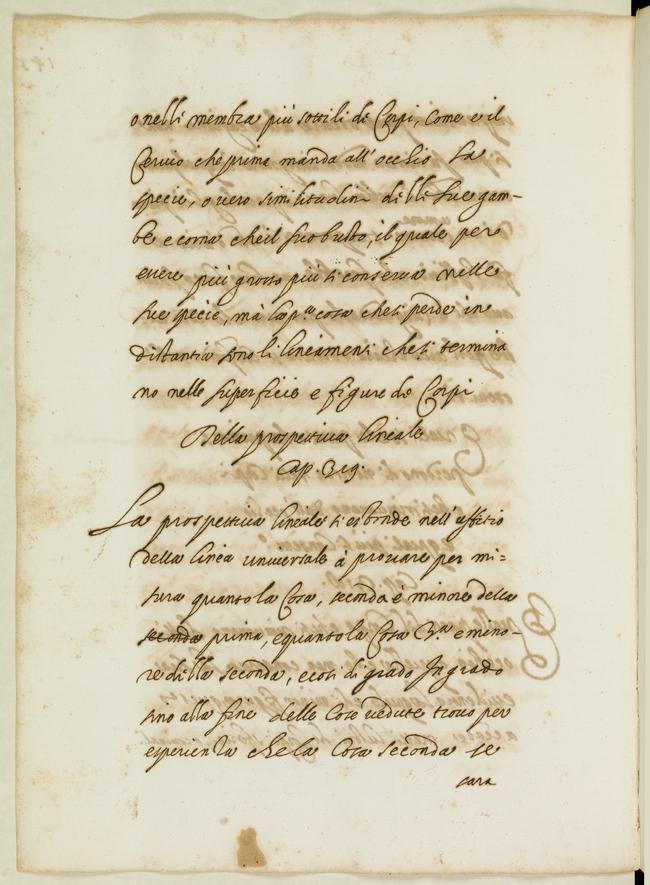 o nelli membra più sottili de Corpi, Come e il
Cervio che prima manda all'occhio la
specie, o vero similitudini delli sue gam-
be e corna che il suo busto, il quale per
essere più grosso più si conserva nelle
sue specie, mà la p.ª cosa che si perde in
distantia sono li lineamenti che si termina
no nelle superficie e figure de Corpi
Della prospettiva lineale
Cap. 319.
La prospettiva lineale si estende nell'uffitio
della linea universale à provare per mi=
sura quanto la Cosa, seconda è minore della
seconda prima, e quanto la Cosa 3.ª e mino-
re della seconda, e così di grado In grado
sino alla fine delle Cose vedute trovo per
esperienza che la Cosa seconda se
sara